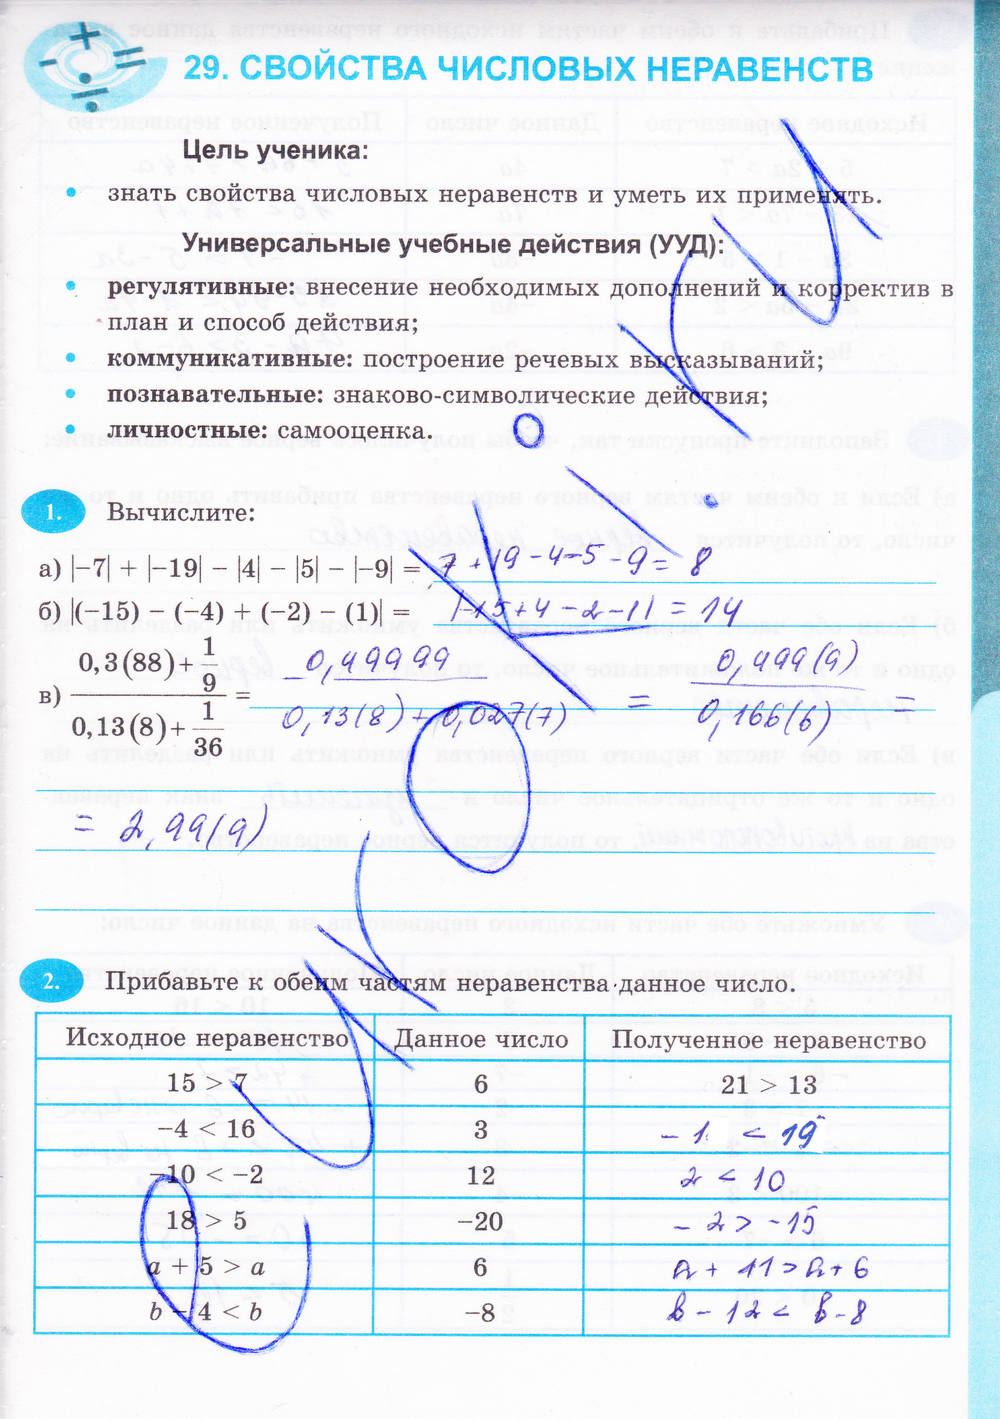 29. СВОЙСТВА ЧИСЛОВЫХ НЕРАВЕНСТВ
Цель ученика:
• знать свойства числовых неравенств и уметь их применять.
Универсальные учебные действия (УУД):
• регулятивные: внесение необходимых дополнений и корректив в
план и способ действия;
• коммуникативные: построение речевых высказываний;
• познавательные: знаково-символические действия;
• личностные: самооценка.
1. Вычислите:
а) |−7| + |−19| − |4| − |5| − |−9| = 7 + 19 - 4 - 5 - 9 = 8
б) |(−15) − (−4) + (−2) − (1)| = |-15 + 4 - 2 - 1| = 14
0,3(88) + 1/9 0,49999 0,499(9)
в) = = =
0,13(8) + 1/36 0,13(8) + 0,027(7) 0,166(6)
= 2,99(9)
2. Прибавьте к обеим частям неравенства данное число.
Исходное неравенство Данное число Полученное неравенство
15 > 7 6 21 > 13
−4 < 16 3 -1 < 19
−10 < −2 12 2 < 10
18 > 5 −20 -2 > -15
a + 5 > a 6 a + 11 > a + 6
b − 4 < b −8 b - 12 < b - 8